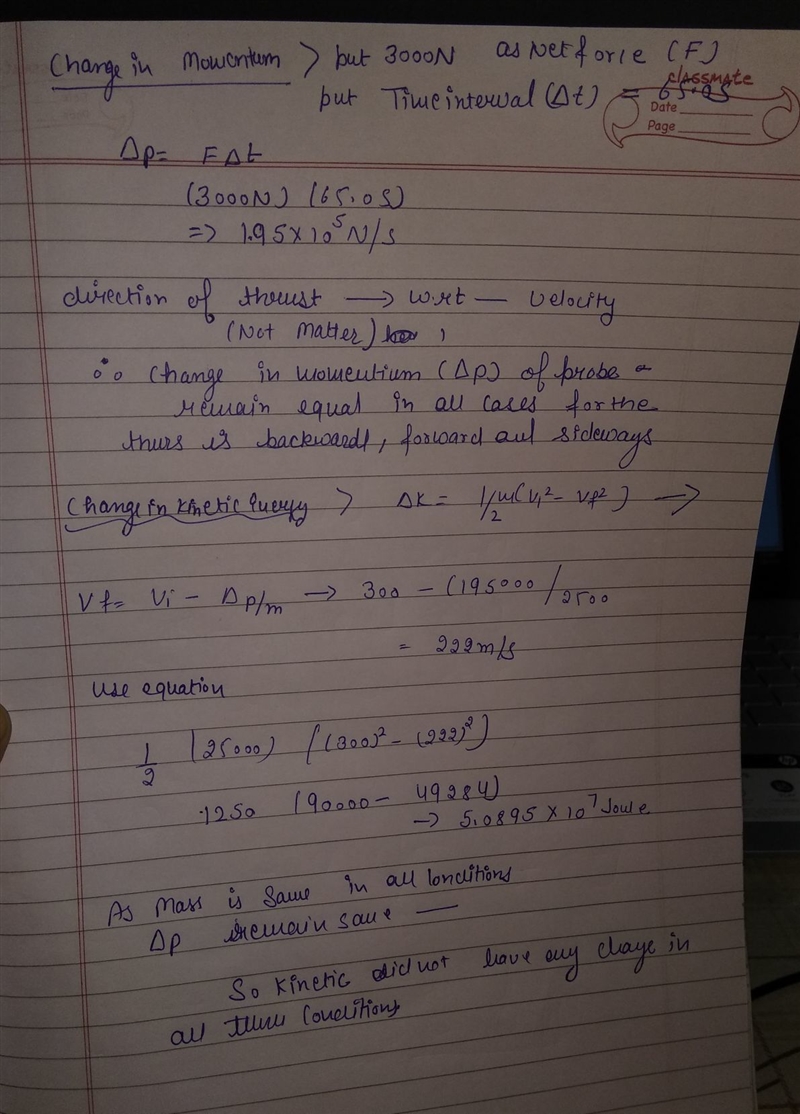 Change in Momentum > put 3000N as Net force (F)
put Time interval (Δt) = 65.0s
classmate
Date
Page
Δp = FΔt
(3000N) (65.0s)
=> 1.95×10⁵ N/s
direction of thrust → w.r.t — velocity
(Not Matter)
∴ Change in momentium (Δp) of probe -
remain equal in all cases for the
thurs is backwardt, forward and sideways
Change in kinetic Energy > ΔK = 1/2 m(Vi² - Vf²) →
Vf = Vi - Δp/m → 300 - (195000/2500
= 222 m/s
use equation
1/2 (25000) ((300)² - (222)²)
.1250 (90000 - 49284)
→ 5.0895 × 10⁷ Joule
As Mass is same in all Conditions
Δp remain same —
So Kinetic did not have any chage in
all three Conditions
hp